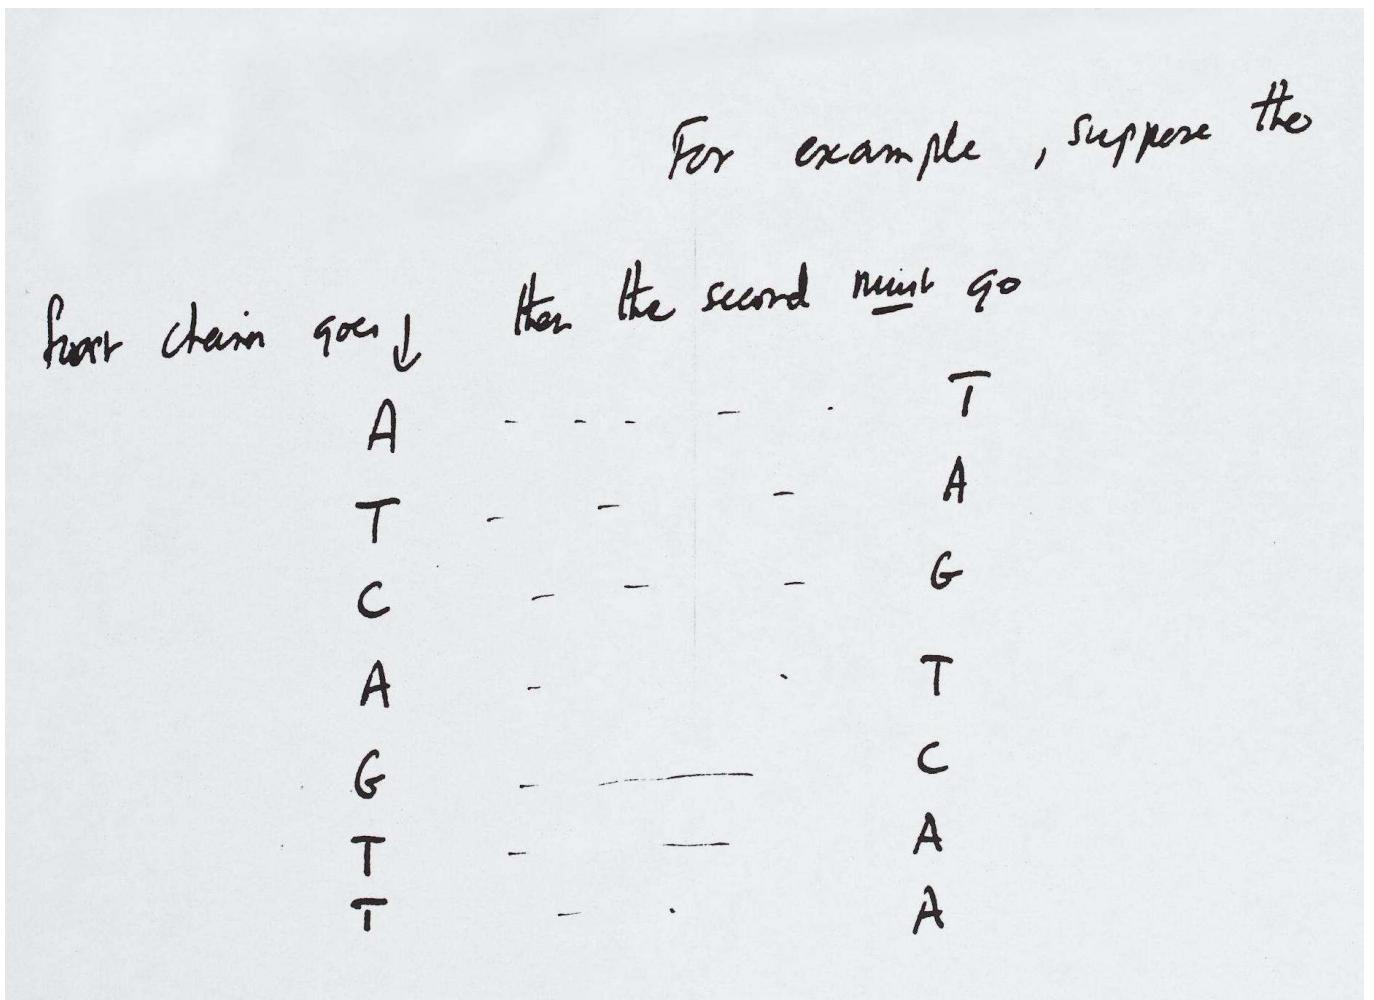 For example, suppose the
first chain goes ↓ then the second must go
A - - - - . T
T - - - A
C - - - G
A - . T
G - — C
T - — A
T - . A